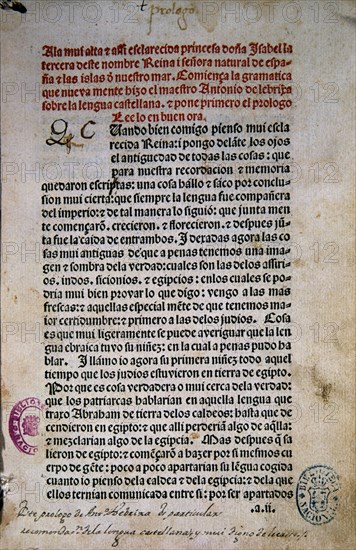 prologo.
A la mui alta ⁊ assi esclarecida princesa doña Isabel la
tercera deste nombre Reina i señora natural de espa-
ña ⁊ las islas đ nuestro mar. Comiença la gramatica
que nueva mente hizo el maestro Antonio de lebrixa
sobre la lengua castellana. ⁊ pone primero el prologo
Lee lo en buen ora.
CUando bien comigo pienso mui escla
recida Reina: i pongo delāte los ojos
el antiguedad de todas las cosas: que
para nuestra recordacion ⁊ memoria
quedaron escriptas: una cosa hállo ⁊ sáco por conclu
sion mui cierta: que siempre la lengua fue compañera
del imperio: ⁊ de tal manera lo siguió: que junta men
te començarō. crecieron. ⁊ florecieron. ⁊ despues jū
ta fue la caida de entrambos. I dexadas agora las co
sas mui antiguas de que a penas tenemos una ima
gen ⁊ sombra dela verdad: cuales son las delos assiri
os. indos. sicionios. ⁊ egipcios: enlos cuales se po
dria mui bien provar lo que digo: vengo a las mas
frescas: ⁊ aquellas especial mēte de que tenemos ma
ior certidumbre: ⁊ primero a las delos judios. Cosa
es que mui ligera mente se puede averiguar que la len
gua ebraica tuvo su niñez: en la cual a penas pudo ha
blar. I llámo io agora su primera niñez todo aquel
tiempo que los judios estuvieron en tierra de egipto.
Por que es cosa verdadera o mui cerca dela verdad:
que los patriarcas hablarian en aquella lengua que
traxo Abraham de tierra delos caldeos: hasta que de
cendieron en egipto: ⁊ que alli perderia algo de aq̄lla:
⁊ mezclarian algo de la egipcia. Mas despues q̄ sa
lieron de egipto: ⁊ comēçarō a hazer por si mesmos cu
erpo de gēte: poco a poco apartarian su lēgua cogida
cuanto io pienso dela caldea ⁊ dela egipcia: ⁊ dela que
ellos ternian comunicada entre si: por ser apartados
.a.ii.
Este prologo de Anto Nebrixa de particular
de la lengua castellana, y mui